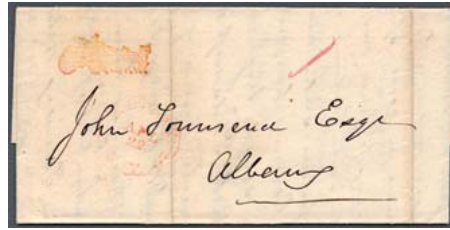 John Townsend Esqr
Albany